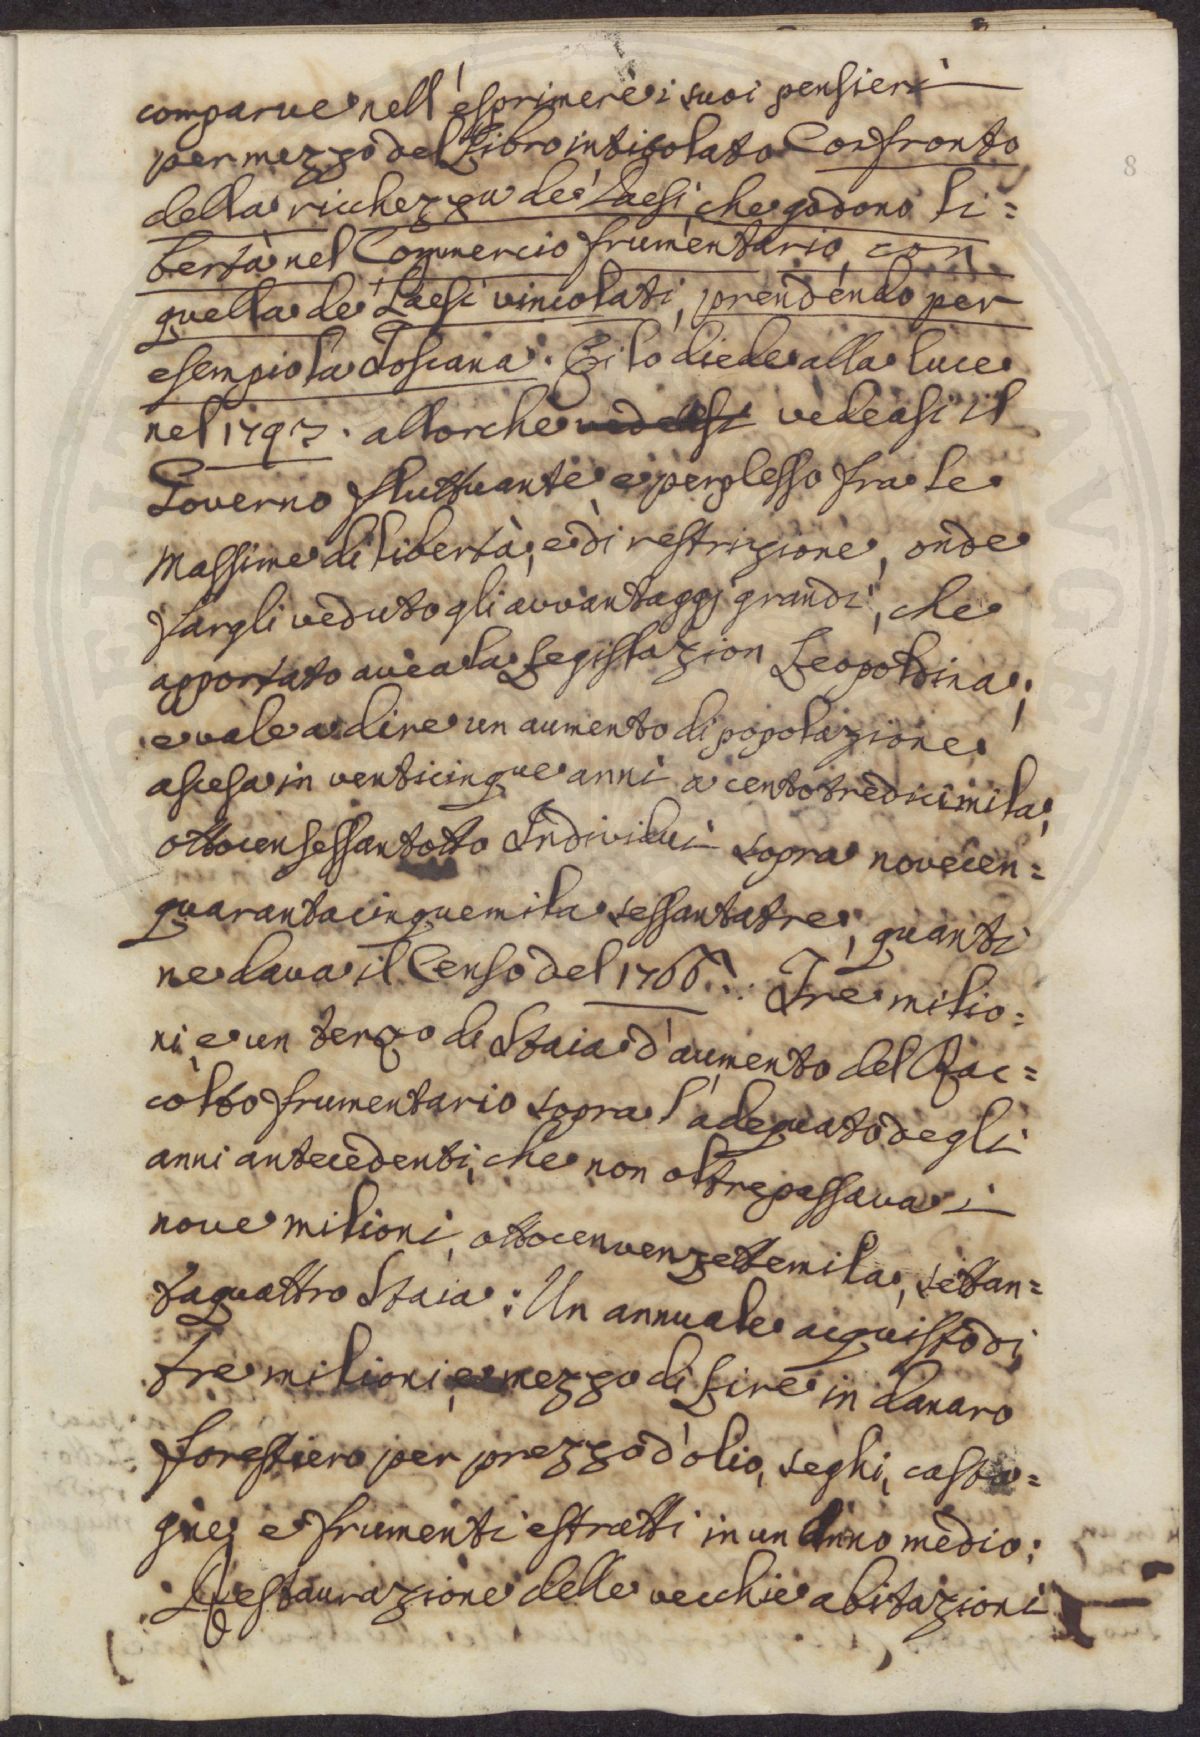 comparve nell'esprimere i suoi pensieri
per mezzo del Libro intitolato Confronto
della ricchezza de' Paesi, che godono li=
bertà nel Commercio frumentario, con
quella de' Paesi vincolati, prendendo per
esempio la Toscana. Ei lo diede alla luce
nel 1793. allorchè vedeasi il
Governo fluttuante e perplesso fra le
Massime di libertà, e di restrizione, onde
fargli veduto gli avvantaggj grandi, che
apportato avea la Legislazion Leopoldina;
e vale a dire un aumento di popolazione
ascesa in venticinque anni a centotredicimila,
ottocensessantotto Individui sopra novecen=
quarantacinquemila sessantatre, quanti
ne dava il Censo del 1766.: Tre milio=
ni, e un terzo di Staia d'aumento del Rac=
colto frumentario sopra l'adequato degli
anni antecedenti, che non oltrepassava i
nove milioni, ottocenvenzettemila, settan=
taquattro Staia: Un annuale acquisto di
tre milioni, e mezzo di Lire in danaro
forestiero per prezzo d'olio, seghi, casta=
gne, e frumenti estratti in un Anno medio:
Restaurazione delle vecchie abitazioni
8